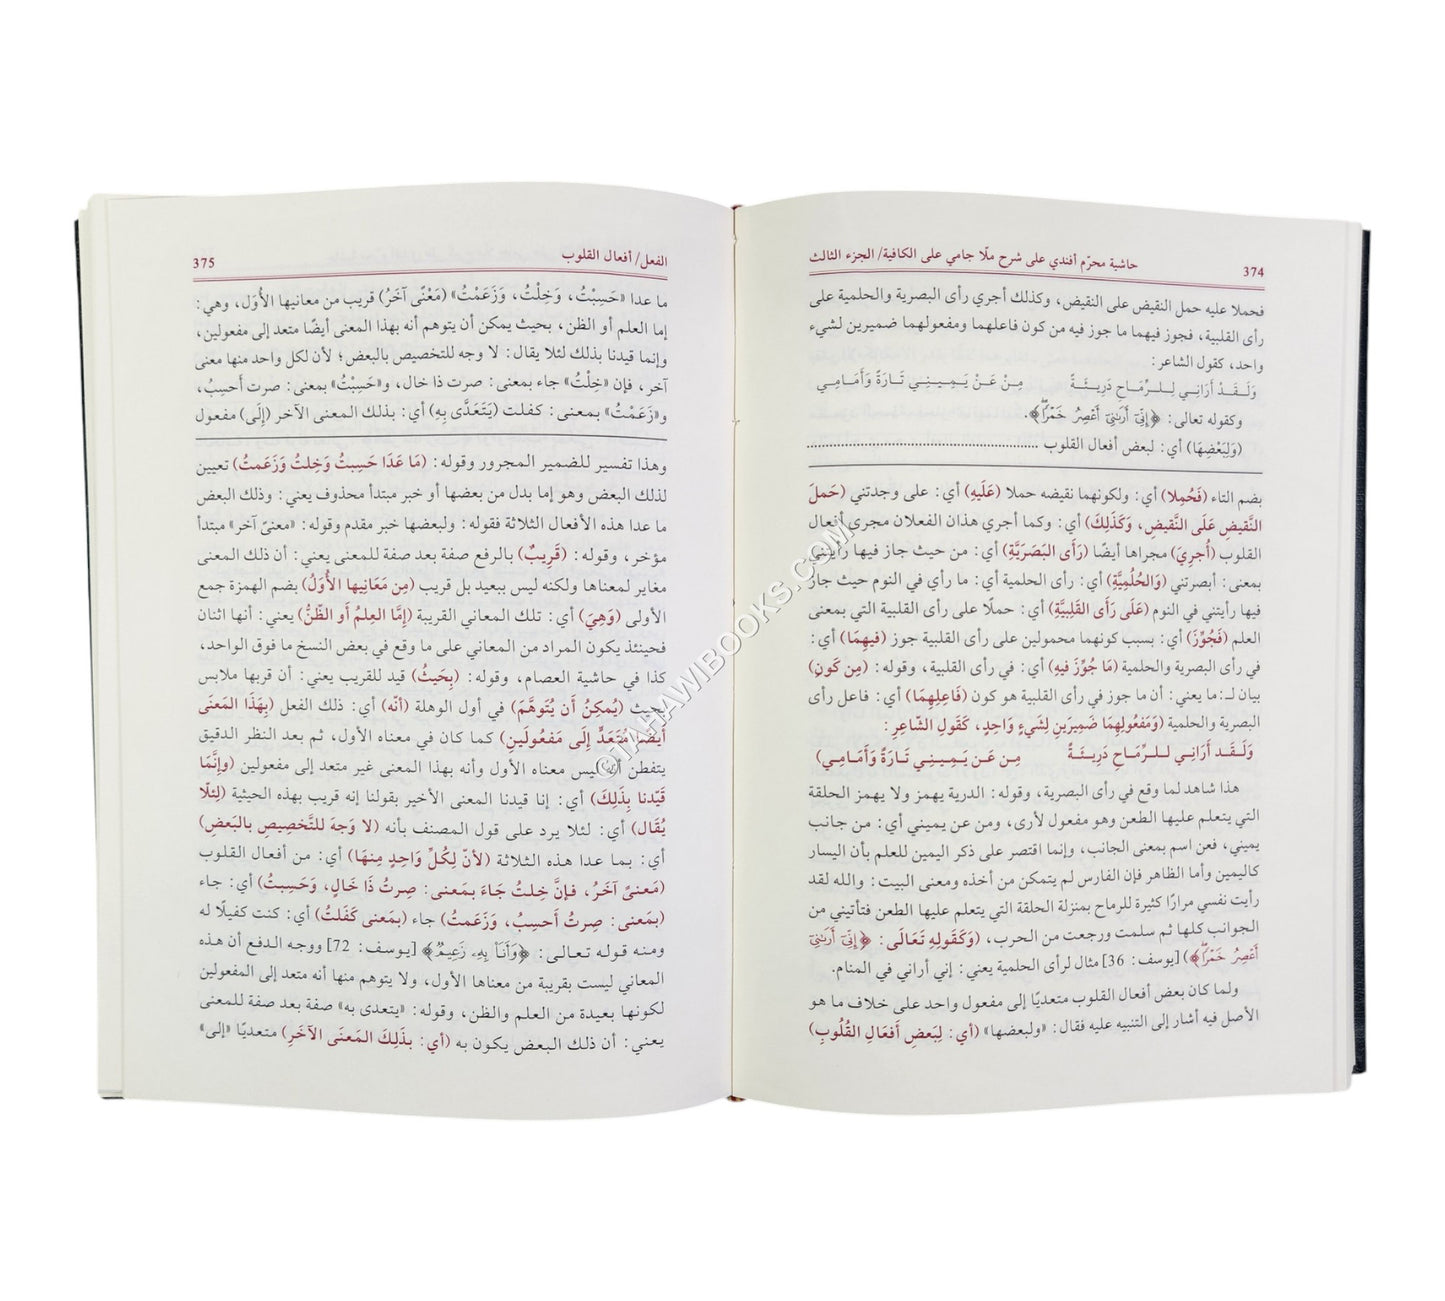 374
حاشية محرّم أفندي على شرح ملّا جامي على الكافية/ الجزء الثالث
فحملا عليه حمل النقيض على النقيض، وكذلك أجري رأى البصرية والحلمية على
رأى القلبية، فجوز فيهما ما جوز فيه من كون فاعلهما ومفعولهما ضميرين لشيء
واحد، كقول الشاعر:
وَلَـقَـدْ أَرَانِـي لِـلـرِّمَـاحِ دَرِيـئَـةً مِـنْ عَـنْ يَـمِـيـنِـي تَـارَةً وَأَمَـامِـي
وكقوله تعالى: ﴿إِنِّيٓ أَرَىٰنِيٓ أَعْصِرُ خَمْرٗاۖ﴾.
(وَلِبَعْضِهَا) أي: لبعض أفعال القلوب ........................................
بضم التاء (فَحُمِلا) أي: ولكونهما نقيضه حملا (عَلَيهِ) أي: على وجدتني (حَملَ
النَّقيضِ عَلَى النَّقيضِ، وَكَذَلِكَ) أي: وكما أجري هذان الفعلان مجرى أفعال
القلوب (أُجرِيَ) مجراها أيضًا (رَأَى البَصَرِيَّةِ) أي: من حيث جاز فيها رأيتني
بمعنى: أبصرتني (وَالحُلُمِيَّةِ) أي: رأى الحلمية أي: ما رأي في النوم حيث جاز
فيها رأيتني في النوم (عَلَى رَأَى القَلبِيَّةِ) أي: حملًا على رأى القلبية التي بمعنى
العلم (فَجُوِّزَ) أي: بسبب كونهما محمولين على رأى القلبية جوز (فيهِمَا) أي:
في رأى البصرية والحلمية (مَا جُوِّزَ فيهِ) أي: في رأى القلبية، وقوله: (مِن كَونِ)
بيان لـ: ما يعني: أن ما جوز في رأى القلبية هو كون (فَاعِلِهِمَا) أي: فاعل رأى
البصرية والحلمية (وَمَفعُولِهِمَا ضَمِيرَينِ لِشَيءٍ وَاحِدٍ، كَقَولِ الشَّاعِرِ:
وَلَـقَـد أَرَانِـي لِـلـرِّمَـاحِ دَرِيـئَـةً مِـن عَـن يَـمِـيـنِـي تَـارَةً وَأَمَـامِـي)
هذا شاهد لما وقع في رأى البصرية، وقوله: الدرية يهمز ولا يهمز الحلقة
التي يتعلم عليها الطعن وهو مفعول لأرى، ومن عن يميني أي: من جانب
يميني، فعن اسم بمعنى الجانب، وإنما اقتصر على ذكر اليمين للعلم بأن اليسار
كاليمين وأما الظاهر فإن الفارس لم يتمكن من أخذه ومعنى البيت: والله لقد
رأيت نفسي مرارًا كثيرة للرماح بمنزلة الحلقة التي يتعلم عليها الطعن فتأتيني من
الجوانب كلها ثم سلمت ورجعت من الحرب، (وَكَقَولِهِ تَعَالَى: ﴿إِنِّيٓ أَرَىٰنِيٓ
أَعْصِرُ خَمْرٗاۖ﴾) [يوسف: 36] مثال لرأى الحلمية يعني: إني أراني في المنام.
ولما كان بعض أفعال القلوب متعديًا إلى مفعول واحد على خلاف ما هو
الأصل فيه أشار إلى التنبيه عليه فقال: «ولبعضها» (أي: لِبَعضِ أَفعَالِ القُلُوبِ)
الفعل/ أفعال القلوب
375
ما عدا «حَسِبْتُ، وَخِلْتُ، وَزَعَمْتُ» (مَعْنًى آخَرُ) قريب من معانيها الأُوَل، وهي:
إما العلم أو الظن، بحيث يمكن أن يتوهم أنه بهذا المعنى أيضًا متعد إلى مفعولين،
وإنما قيدنا بذلك لئلا يقال: لا وجه للتخصيص بالبعض؛ لأن لكل واحد منها معنى
آخر، فإن «خِلْتُ» جاء بمعنى: صرت ذا خال، و«حَسِبْتُ» بمعنى: صرت أَحسِبُ،
و«زَعَمْتُ» بمعنى: كفلت (يَتَعَدَّى بِهِ) أي: بذلك المعنى الآخر (إِلَى) مفعول
وهذا تفسير للضمير المجرور وقوله: (مَا عَدَا حَسِبتُ وَخِلتُ وَزَعَمتُ) تعيين
لذلك البعض وهو إما بدل من بعضها أو خبر مبتدأ محذوف يعني: وذلك البعض
ما عدا هذه الأفعال الثلاثة فقوله: ولبعضها خبر مقدم وقوله: «معنىً آخر» مبتدأ
مؤخر، وقوله: (قَرِيبٌ) بالرفع صفة بعد صفة للمعنى يعني: أن ذلك المعنى
مغاير لمعناها ولكنه ليس ببعيد بل قريب (مِن مَعَانِيها الأُوَلُ) بضم الهمزة جمع
الأولى (وَهِيَ) أي: تلك المعاني القريبة (إِمَّا العِلمُ أَو الظَّنُّ) يعني: أنها اثنان
فحينئذ يكون المراد من المعاني على ما وقع في بعض النسخ ما فوق الواحد،
كذا في حاشية العصام، وقوله: (بِحَيثُ) قيد للقريب يعني: أن قربها ملابس
بحيث (يُمكِنُ أَن يُتَوهَّمَ) في أول الوهلة (أنّه) أي: ذلك الفعل (بِهَذَا المَعنَى
أَيضًا مُتَعَدٍّ إِلَى مَفعُولَينِ) كما كان في معناه الأول، ثم بعد النظر الدقيق
يتفطن أنه ليس معناه الأول وأنه بهذا المعنى غير متعد إلى مفعولين (وإنَّمَا
قَيّدنا بِذَلِكَ) أي: إنا قيدنا المعنى الأخير بقولنا إنه قريب بهذه الحيثية (لِئلّا
يُقَال) أي: لئلا يرد على قول المصنف بأنه (لا وَجهَ للتَّخصِيصِ بالبَعضِ)
أي: بما عدا هذه الثلاثة (لأنّ لِكُلِّ وَاحِدٍ مِنهَا) أي: من أفعال القلوب
(مَعنىً آخَرُ، فـإنَّ خِلتُ جَاءَ بـمَعنى: صِرتُ ذَا خَالٍ، وَحَسِبتُ) أي: جاء
(بـمَعنى: صِرتُ أَحسِبُ، وَزَعَمتُ) جاء (بمَعنى كَفَلتُ) أي: كنت كفيلًا له
ومنه قوله تـعـالـى: ﴿وَأَنَا۠ بِهِۦ زَعِيمٞ﴾ [يـوسف: 72] ووجه الدفع أن هذه
المعاني ليست بقريبة من معناها الأول، ولا يتوهم منها أنه متعد إلى المفعولين
لكونها بعيدة من العلم والظن، وقوله: «يتعدى به» صفة بعد صفة للمعنى
يعني: أن ذلك البعض يكون به (أي: بذَلِكَ المَعنَى الآخَرِ) متعديًا «إلى»
©JAHAWIBOOKS.COM